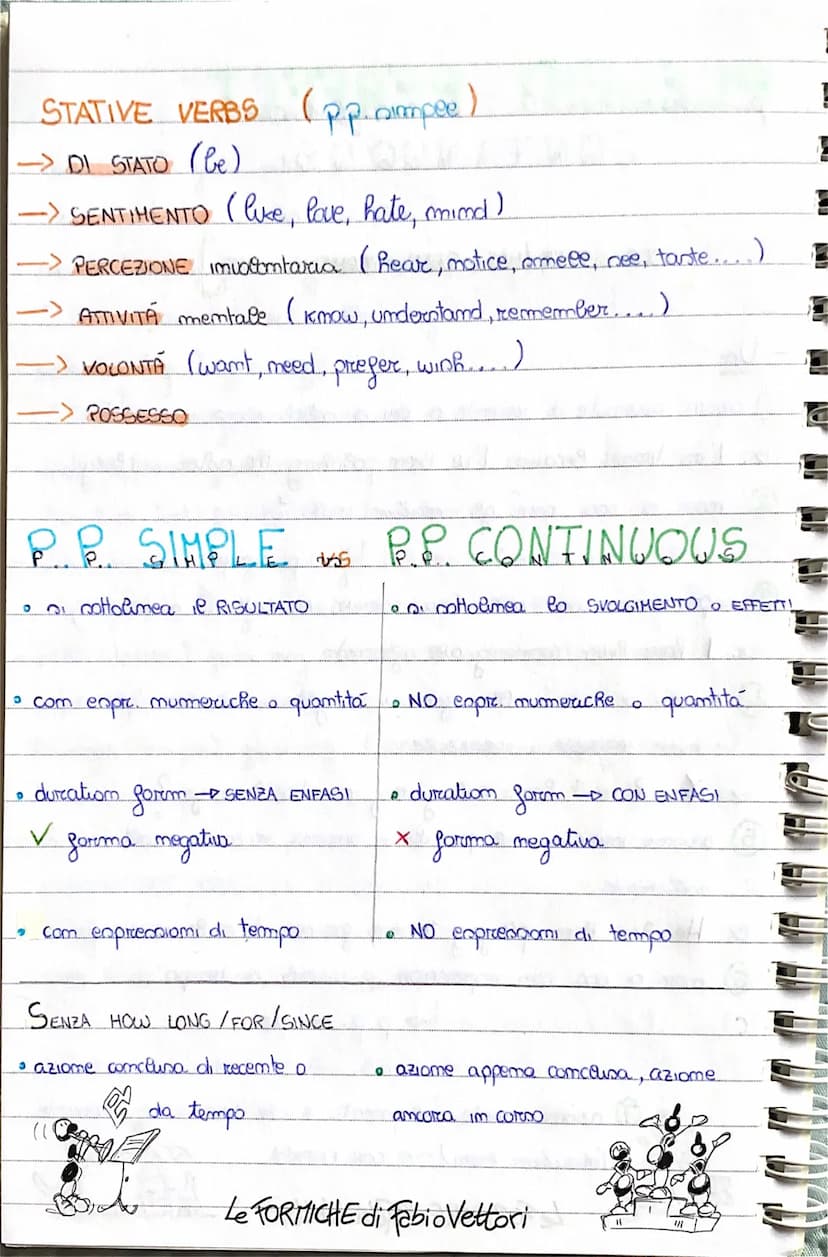 STATIVE VERBS (p.p. simple)
→ DI STATO (be)
→ SENTIMENTO (like, love, hate, mind)
→ PERCEZIONE involontaria (hear, notice, smell, see, taste....)
→ ATTIVITÁ mentale (know, understand, remember....)
→ VOLONTÁ (want, need, prefer, wish....)
→ POSSESSO
P.P. SIMPLE vs P.P. CONTINUOUS
• si sottolinea il RISULTATO
• si sottolinea lo SVOLGIMENTO o EFFETTI
• con espr. numeriche o quantitá
• NO espr. numeriche o quantitá
• duration form → SENZA ENFASI
• duration form → CON ENFASI
✓ forma negativa
✗ forma negativa
• con espressioni di tempo
• NO espressioni di tempo
SENZA HOW LONG / FOR / SINCE
• azione conclusa di recente o
da tempo
• azione appena conclusa, azione
ancora in corso
Le FORMICHE di Fabio Vettori